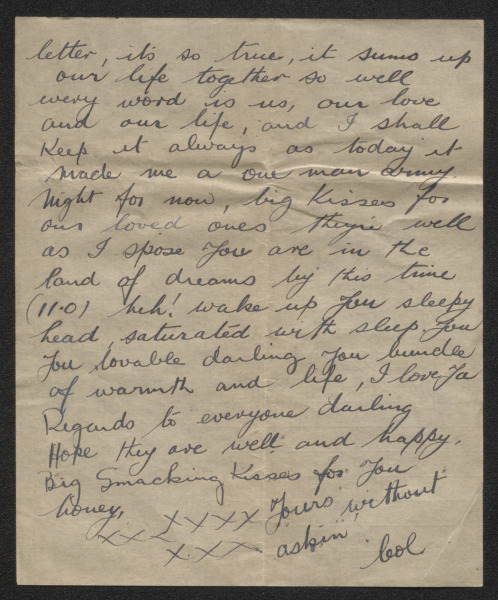 letter, it's so true, it sums up
our life together so well
every word is us, our love
and our life, and I shall
Keep it always as today it
made me a one man army
Night for now, big Kisses for
our loved ones they're well
as I spose You are in the
land of dreams by this time
(11.0) heh! wake up You sleepy
head, saturated with sleep. You
You lovable darling You bundle
of warmth and life, I love Ya
Regards to everyone darling
Hope they are well and happy.
Big Smacking Kisses for You
honey, xxxx Yours without
xxx
xxx askin
Col